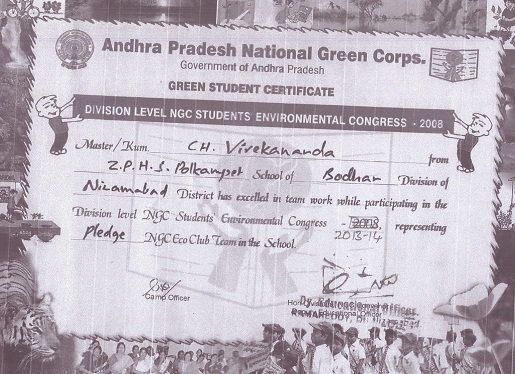 Andhra Pradesh National Green Corps.
Government of Andhra Pradesh
GREEN STUDENT CERTIFICATE
DIVISION LEVEL NGC STUDENTS ENVIRONMENTAL CONGRESS - 2008
Master/Kum. CH. Vivekananda from
Z.P.H.S. Polkampet School of Bodhan Division of
Nizamabad District has excelled in team work while participating in the
Division level NGC Students' Environmental Congress - 2008, representing
2013-14
Pledge NGC Eco Club Team in the School.
Camp Officer
Dy. Educational Officer